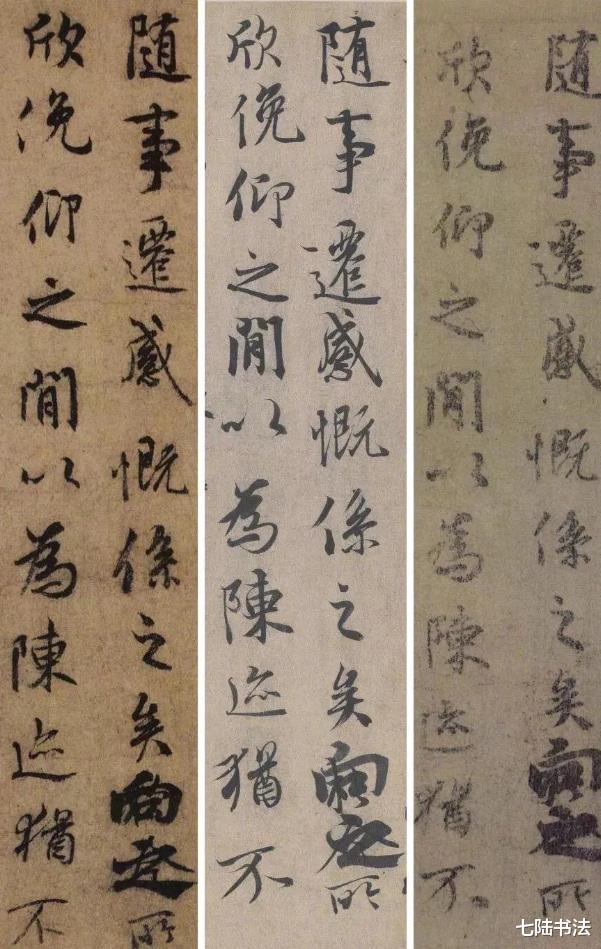 随事遷感慨係之矣向之所
欣俛仰之閒以為陳迹猶不
随事遷感慨係之矣向之所
欣俛仰之閒以為陳迹猶不
随事遷感慨係之矣向之所
欣俛仰之閒以為陳迹猶不
七陆书法